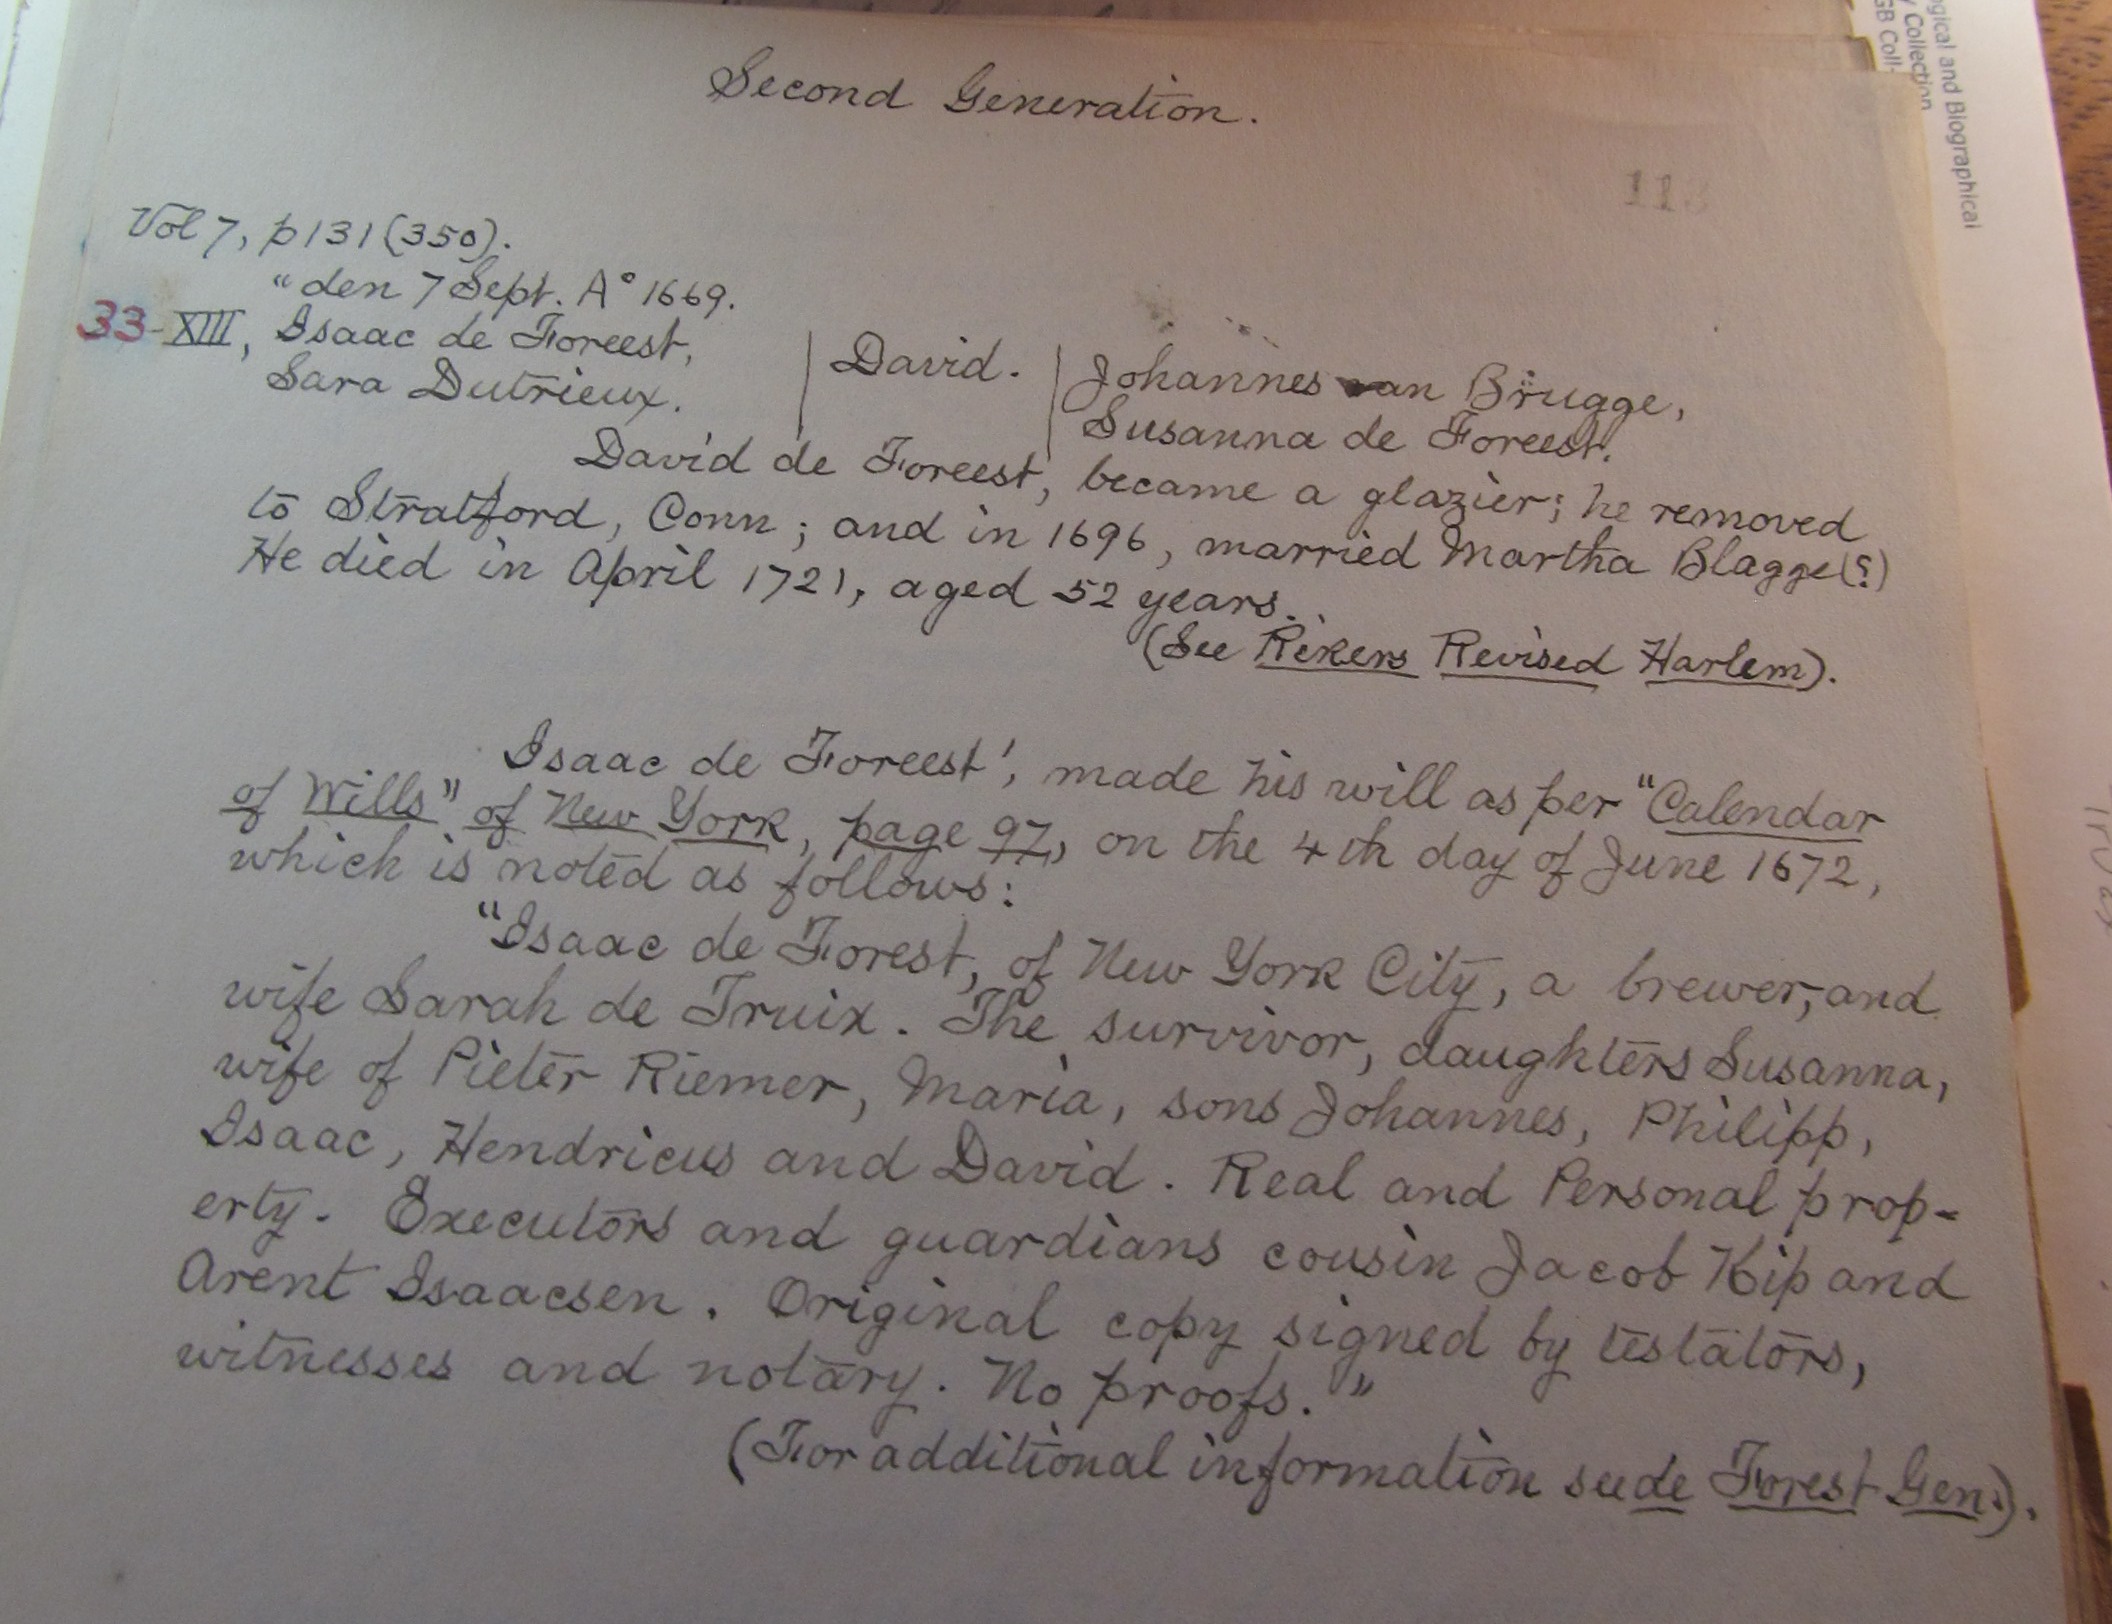 Second Generation.
113
Vol 7, p 131 (350).
"den 7 Sept. A° 1669.
33-XIII, Isaac de Foreest, | David. | Johannes van Brugge,
Sara Dutrieux. Susanna de Foreest.
David de Foreest, became a glazier; he removed
to Stratford, Conn; and in 1696, married Martha Blagge(?)
He died in April 1721, aged 52 years.
(See Rikers Revised Harlem).
Isaac de Foreest', made his will as per "Calendar
of Wills" of New York, page 97, on the 4th day of June 1672,
which is noted as follows:
"Isaac de Forest, of New York City, a brewer, and
wife Sarah de Truix. The survivor, daughters Susanna,
wife of Pieter Riemer, Maria, sons Johannes, Philipp,
Isaac, Hendricus and David. Real and Personal prop-
erty. Executors and guardians cousin Jacob Kip and
Arent Isaacsen. Original copy signed by testators,
witnesses and notary. No proofs."
(For additional information see de Forest Gen.).
ogical and Biographical
y Collection
GB Coll-